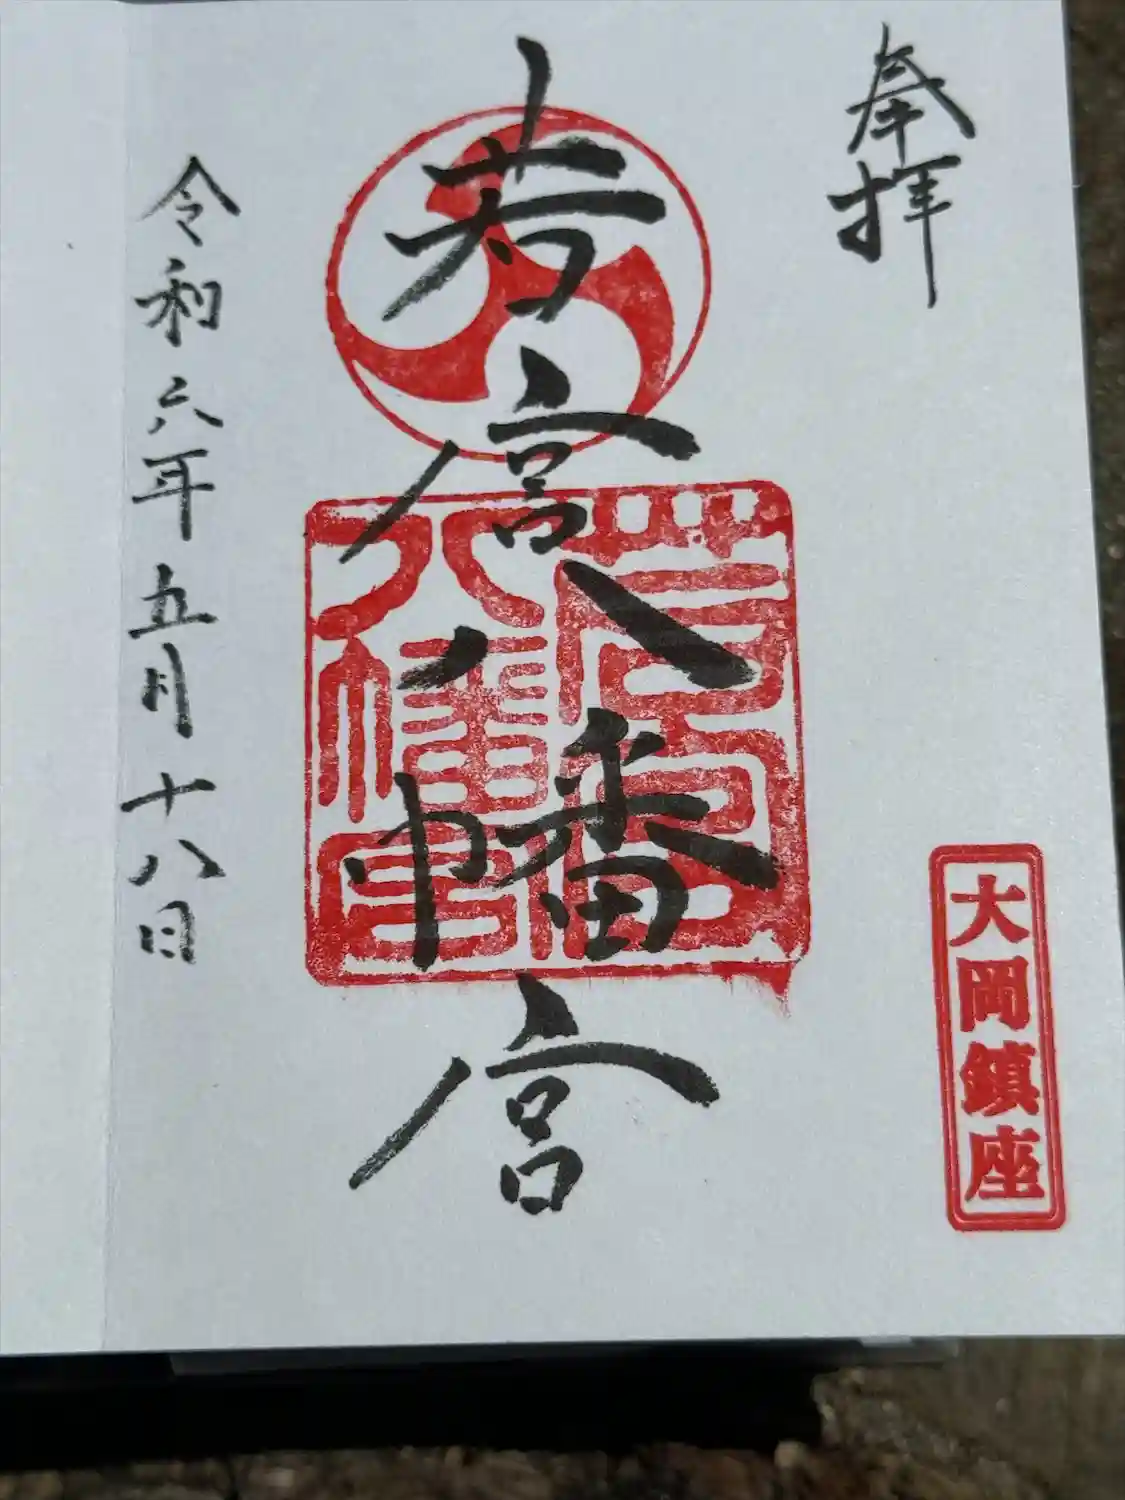 奉拝
大岡鎮座
若宮八幡宮
若宮
八幡宮
令和六年五月十八日